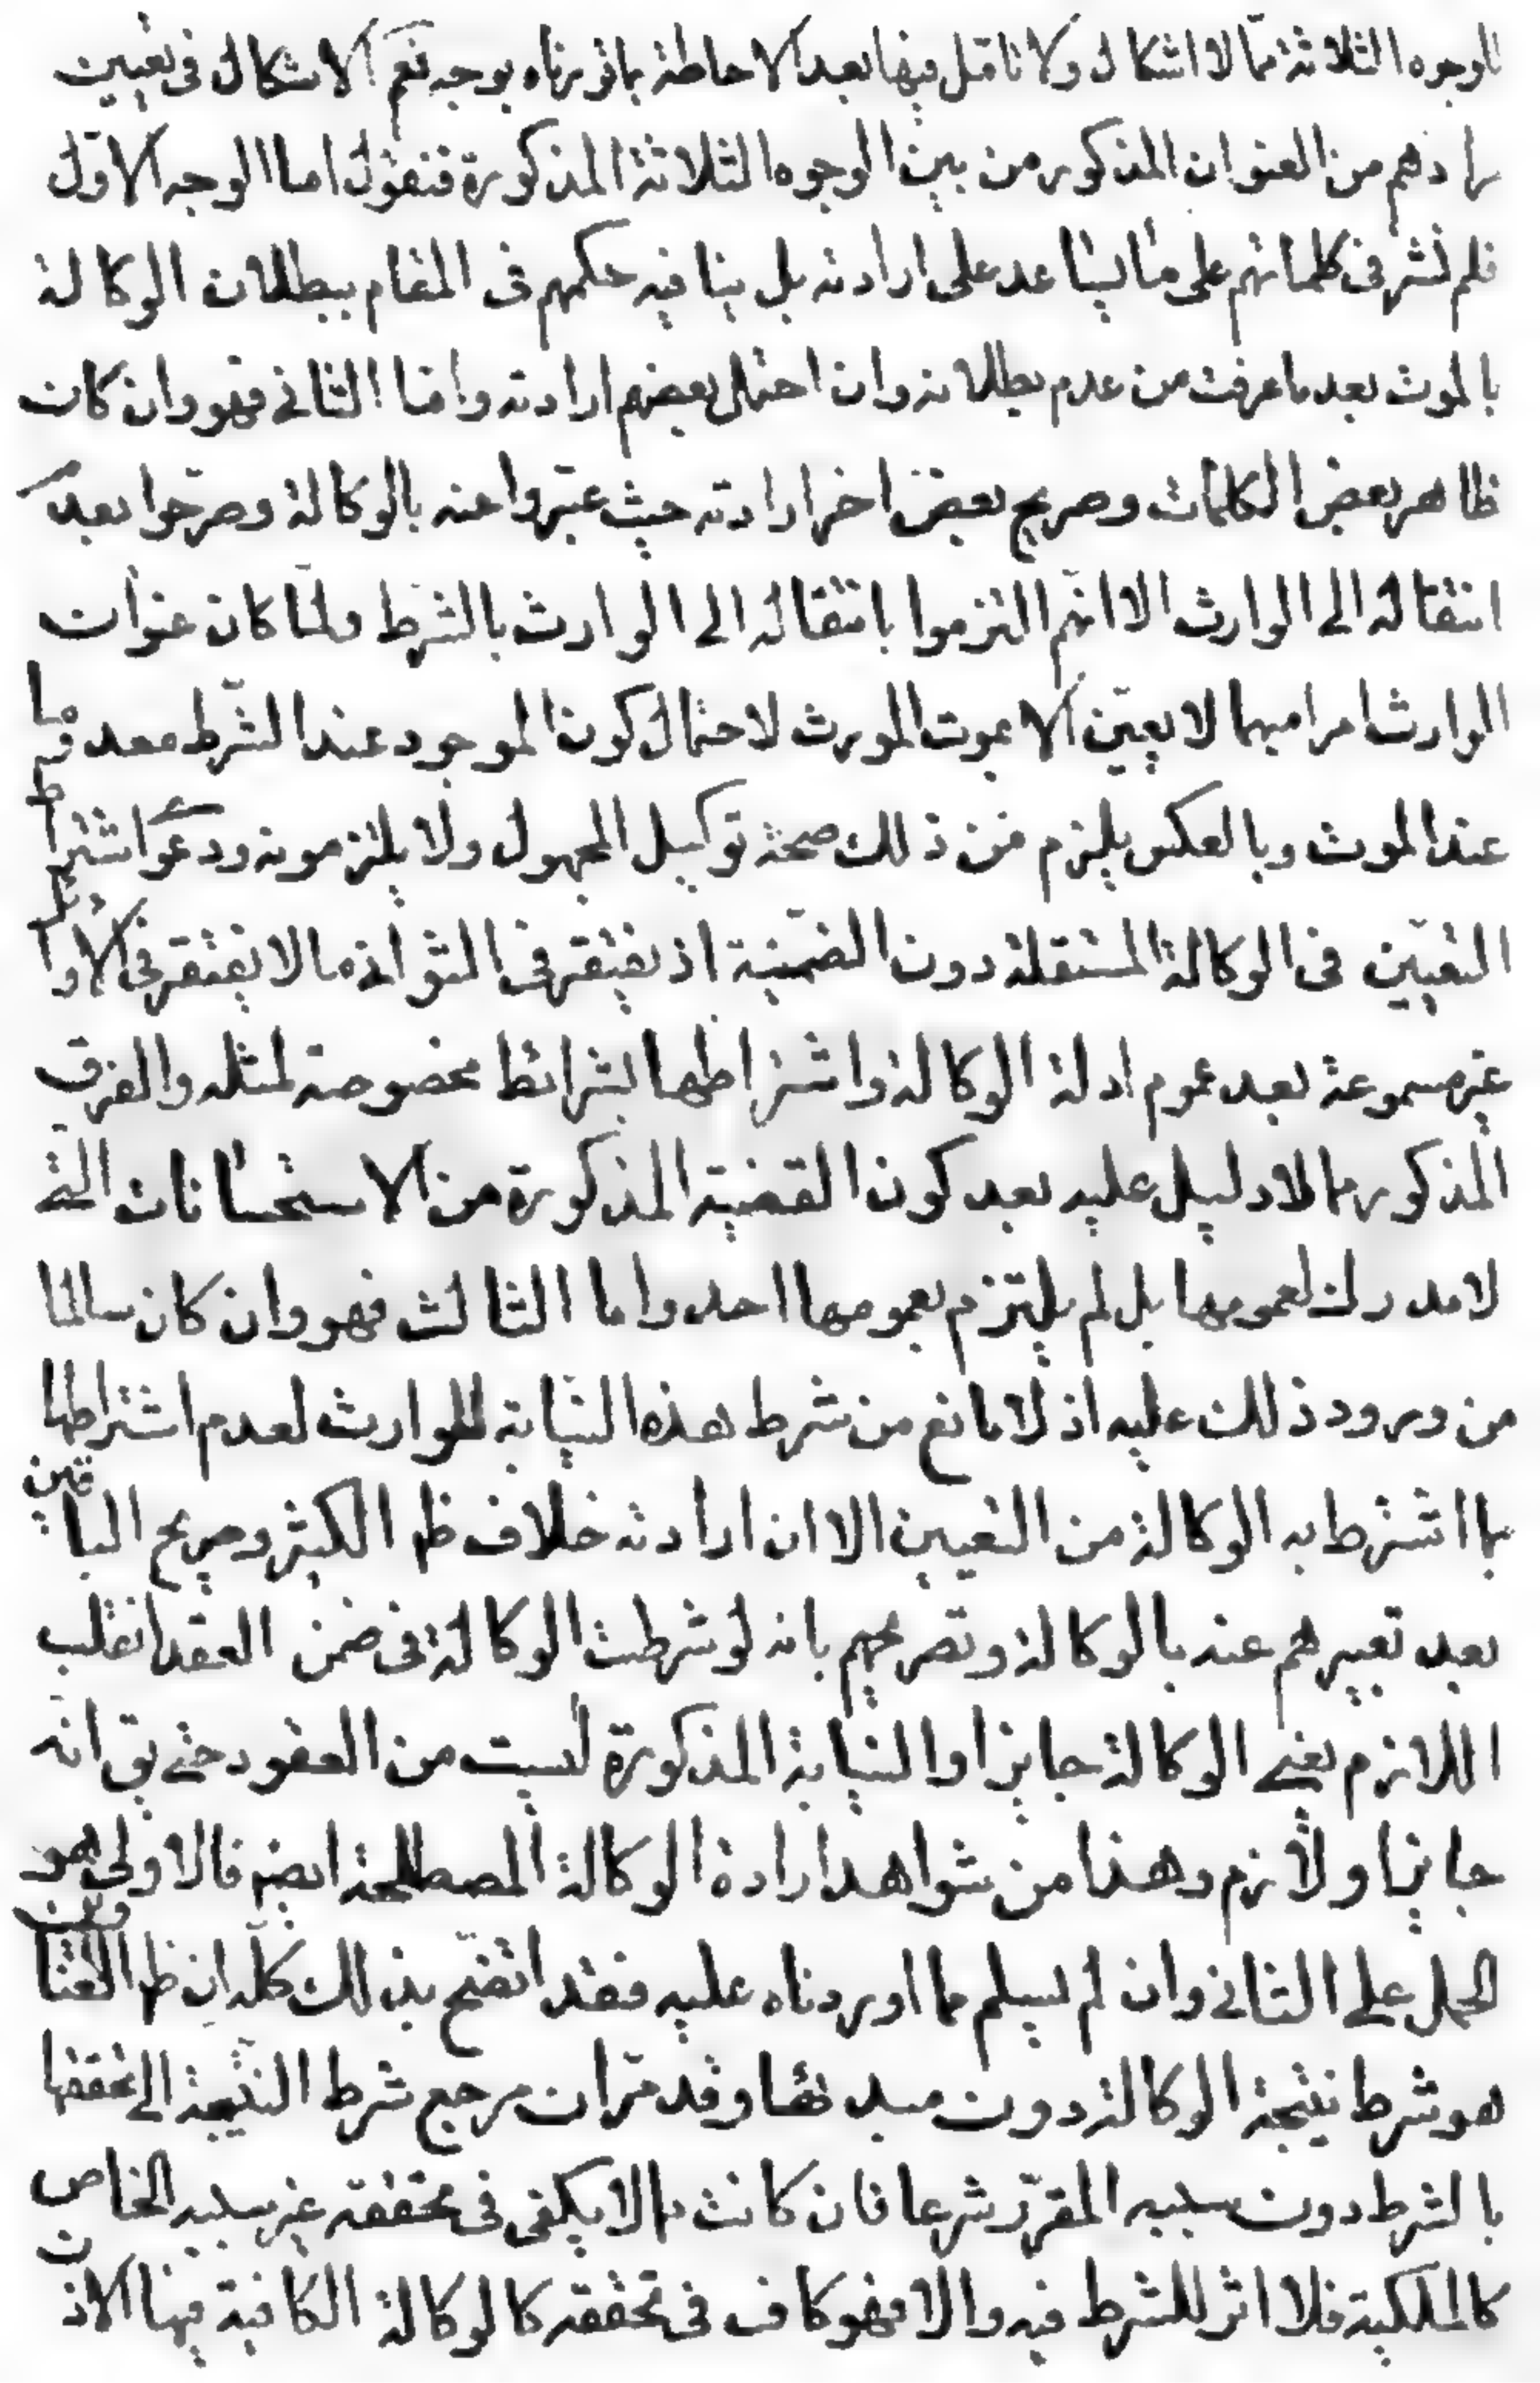 الوجوه الثلاثة مما لا اشكال ولا تامّل فيها بعد الاحاطة بما قررناه بوجه نعم الاشكال فى تعيين
مرادهم من العنوان المذكور من بين الوجوه الثلاثة المذكورة فنقول اما الوجه الاوّل
فلم نعثر فى كلماتهم على ما يساعد على ارادته بل ينافيه حكمهم فى المقام ببطلان الوكالة
بالموت بعد ما عرفت من عدم بطلانه وان احتمل بعضهم ارادته واما الثانى فهو وان كان
ظاهر بعض الكلمات وصريح بعض اخر ارادته حيث عبّروا عنه بالوكالة وصرّحوا بعدم
انتقاله الى الوارث الا انهم التزموا بانتقاله الى الوارث بالشرط ولمّا كان عنوان
الوارث امرا مبهما لا يعيّن الا بموت المورث لاحتمال كون الموجود عند الشرط معدوما
عند الموت وبالعكس يلزم من ذلك صحة توكيل المجهول ولا يلتزمونه ودعوى اشتراط
التعيين فى الوكالة المستقلة دون الضمنية اذ يغتفر فى الثوانى ما لا يغتفر فى الاوائل
غير مسموعة بعد عموم ادلة الوكالة واشتراطها بشرائط مخصوصة لمثله والفرق
المذكور مما لا دليل عليه بعد كون القضية المذكورة من الاستحسانات التى
لا مدرك لعمومها بل لم يلتزم بعمومها احد واما الثالث فهو وان كان سالما
من ورود ذلك عليه اذ لا مانع من شرط هذه النيابة للوارث لعدم اشتراطها
بما اشترط به الوكالة من التعيين الا ان ارادته خلاف ظ الكثير وصريح الباقين
بعد تعبيرهم عنه بالوكالة وتصريحهم بانه لو شرطت الوكالة فى ضمن العقد انقلب
اللازم يعنى الوكالة جايزا والنيابة المذكورة ليست من العقود حتى يق انه
جايز او لازم وهذا من شواهد ارادة الوكالة المصطلحة ايضم فالاولى هو
الحمل على الثانى وان لم يسلم مما اوردناه عليه فقد اتضح بذلك كله ان ظ العناوين
هو شرط نتيجة الوكالة دون مبدئها وقد مرّ ان مرجع شرط النتيجة الى تحققها
بالشرط دون سببه المقرّر شرعا فان كانت مما لا يكفى فى تحققه غير سببه الخاص
كالملكية فلا اثر للشرط فيه والا فهو كاف فى تحققه كالوكالة الكافية فيها الاذن